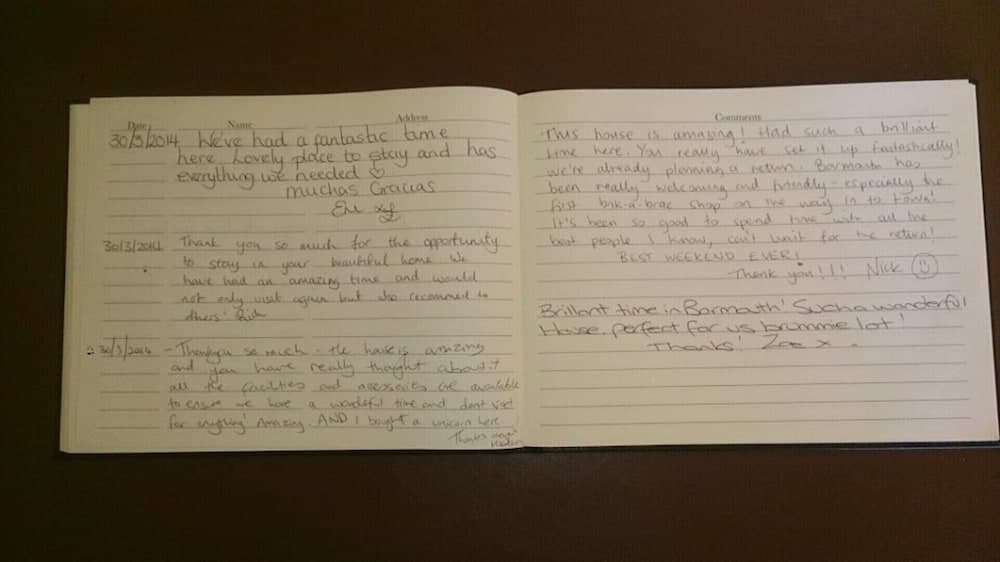 Date Name Address
30/3/2014 We've had a fantastic time
here. Lovely place to stay and has
everything we needed ♡
muchas Gracias
30/3/2014 Thank you so much for the opportunity
to stay in your beautiful home. We
have had an amazing time and would
not only visit again but also recommed to
others!
30/3/2014 - Thankyou so much - the house is amazing
and you have really thought about it
all the facilities and accessories are available
to ensure we have a wonderful time and dont
for anything! Amazing. AND I bought a unicorn here
Thanks
Comments
This house is amazing! Had such a brilliant
time here. You really have set it up fantastically!
We're already planning a return. Barmouth has
been really welcoming and friendly - especially the
first brik-a-brac shop on the way in to town!
It's been so good to spend time with all the
best people I know, can't wait for the return!
BEST WEEKEND EVER!
Thank you!!! Nick ☺
Brillant time in Barmouth! Such a wonderful
House, perfect for us brummie lot!
Thanks! Zoe x.